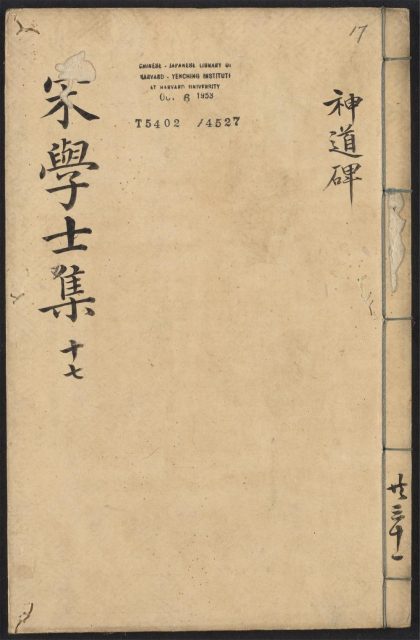 17
神道碑
CHINESE - JAPANESE LIBRARY OF
HARVARD - YENCHING INSTITUTE
AT HARVARD UNIVERSITY
6 1953
T5402 /4527
宋學士集 十七
共三十一